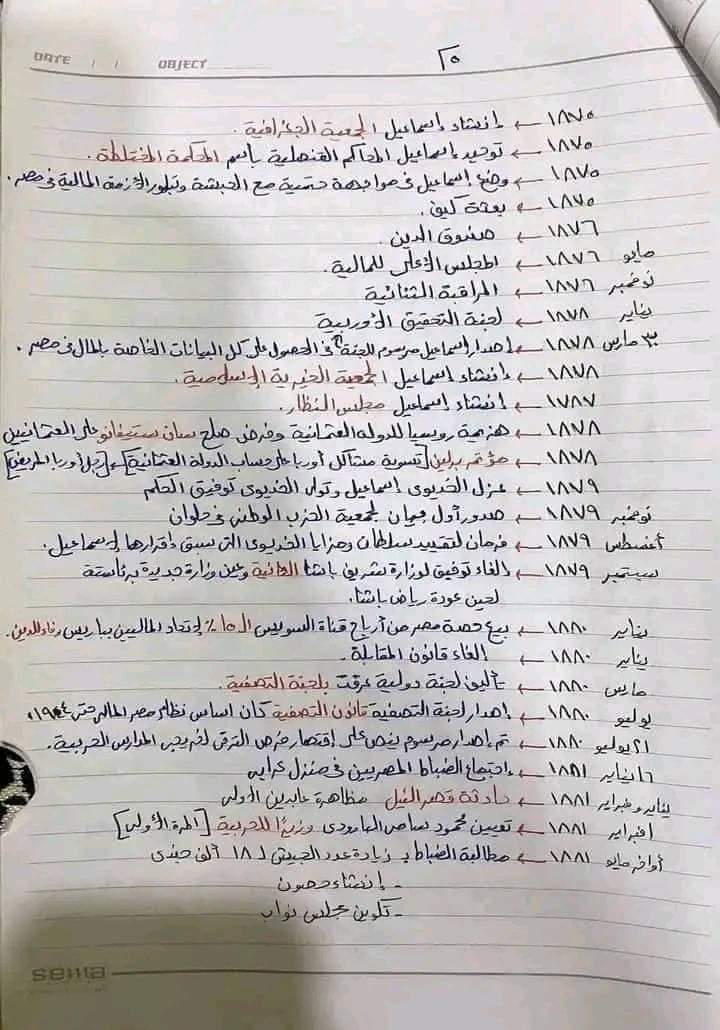 DATE / / OBJECT
٢٥
١٨٧٥ ← إنشاء إسماعيل الجمعية الجغرافية.
١٨٧٥ ← توحيد إسماعيل المحاكم القنصلية باسم المحكمة المختلطة.
١٨٧٥ ← وضع إسماعيل في مواجهة حتمية مع الحبشة وتبلور الأزمة المالية في مصر.
١٨٧٥ ← بعثة كيف.
١٨٧٦ ← صندوق الدين.
مايو ١٨٧٦ ← المجلس الأعلى للمالية.
نوفمبر ١٨٧٦ ← المراقبة الثنائية
يناير ١٨٧٨ ← لجنة التحقيق الأوربية
٣٠ مارس ١٨٧٨ ← إصدار إسماعيل مرسوم للجنة في الحصول على كل البيانات الخاصة بالمال في مصر.
١٨٧٨ ← إنشاء إسماعيل الجمعية الخيرية الإسلامية.
١٧٨٧ ← إنشاء إسماعيل مجلس النظار.
١٨٧٨ ← هزيمة روسيا للدولة العثمانية وفرض صلح سان ستيفانو على العثمانيين
١٨٧٨ ← مؤتمر برلين [تسوية مشاكل أوربا على حساب الدولة العثمانية] [رجل أوربا المريض]
١٨٧٩ ← عزل الخديوى إسماعيل وتولى الخديوى توفيق الحكم
نوفمبر ١٨٧٩ ← صدور أول بيان لجمعية الحزب الوطنى في حلوان
أغسطس ١٨٧٩ ← فرمان لتقييد سلطان ومزايا الخديوى التى سبق إقرارها لإسماعيل.
سبتمبر ١٨٧٩ ← الغاء توفيق لوزارة شريف باشا الثانية وعين وزارة جديدة برئاستة
لحين عودة رياض باشا.
يناير ١٨٨٠ ← بيع حصة مصر من أرباح قناة السويس الـ ١٥٪ لإتحاد الماليين بباريس وفاء للدين.
يناير ١٨٨٠ ← إلغاء قانون المقابلة.
مارس ١٨٨٠ ← تأليف لجنة دولية عرفت بلجنة التصفية.
يوليو ١٨٨٠ ← إصدار لجنة التصفية قانون التصفية كان اساس نظام مصر المالى حتى ١٩٠٤م
٢١ يوليو ١٨٨٠ ← تم إصدار مرسوم ينص على إقتصار فرص الترقى لخريجى المدارس الحربية.
١٦ يناير ١٨٨١ ← إجتماع الضباط المصريين في منزل عرابى
يناير وفبراير ١٨٨١ ← حادثة قصر النيل مظاهرة عابدين الأولى
١ فبراير ١٨٨١ ← تعيين محمود سامى البارودى وزيرًا للحربية [المرة الأولى]
أواخر مايو ١٨٨١ ← مطالبة الضباط بـ زيادة عدد الجيش لـ ١٨ ألف جندى
- إنشاء حصون
- تكوين مجلس نواب
sema